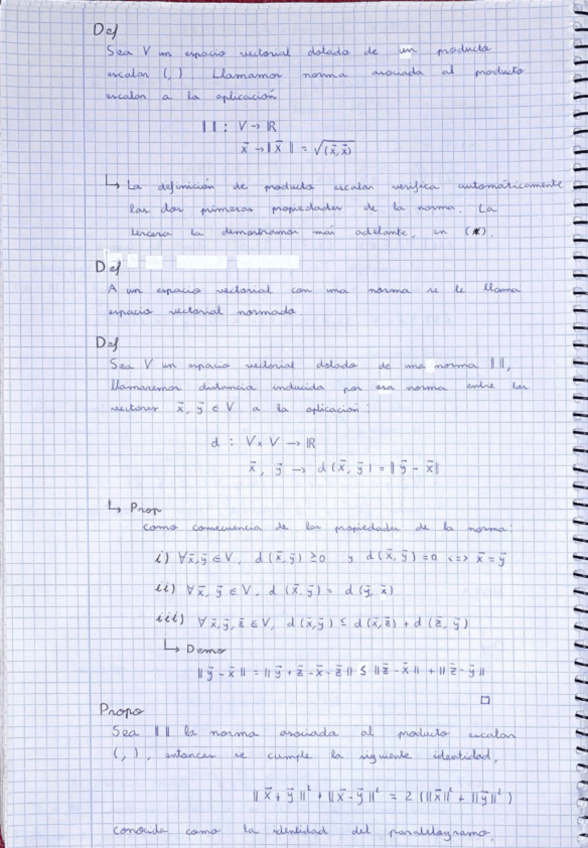 Def
Sea V un espacio vectorial dotado de un producto
escalar (,) Llamamos norma asociada al producto
escalar a la aplicación
‖ ‖ : V → ℝ
x̄ → ‖x̄‖ = √(x̄,x̄)
↳ La definición de producto escalar verifica automáticamente
las dos primeras propiedades de la norma. La
tercera la demostramos más adelante, en (*).
Def
A un espacio vectorial con una norma se le llama
espacio vectorial normado
Def
Sea V un espacio vectorial dotado de una norma ‖ ‖,
llamaremos distancia inducida por esa norma entre los
vectores x̄, ȳ ∈ V a la aplicación:
d : V × V → ℝ
x̄, ȳ → d(x̄, ȳ) = ‖ȳ - x̄‖
↳ Prop
Como consecuencia de las propiedades de la norma:
i) ∀x̄,ȳ ∈ V, d(x̄,ȳ) ≥0 y d(x̄,ȳ)=0 <=> x̄ = ȳ
ii) ∀x̄, ȳ ∈ V, d(x̄,ȳ) = d(ȳ, x̄)
iii) ∀x̄,ȳ,z̄ ∈ V, d(x̄,ȳ) ≤ d(x̄,z̄) + d(z̄, ȳ)
↳ Demo
‖ȳ - x̄‖ = ‖ȳ + z̄ - x̄ - z̄‖ ≤ ‖z̄ - x̄‖ + ‖z̄ - ȳ‖
□
Propo
Sea ‖ ‖ la norma asociada al producto escalar
(,), entonces se cumple la siguiente identidad,
‖x̄ + ȳ‖² + ‖x̄ - ȳ‖² = 2 (‖x̄‖² + ‖ȳ‖²)
conocida como la identidad del paralelogramo.